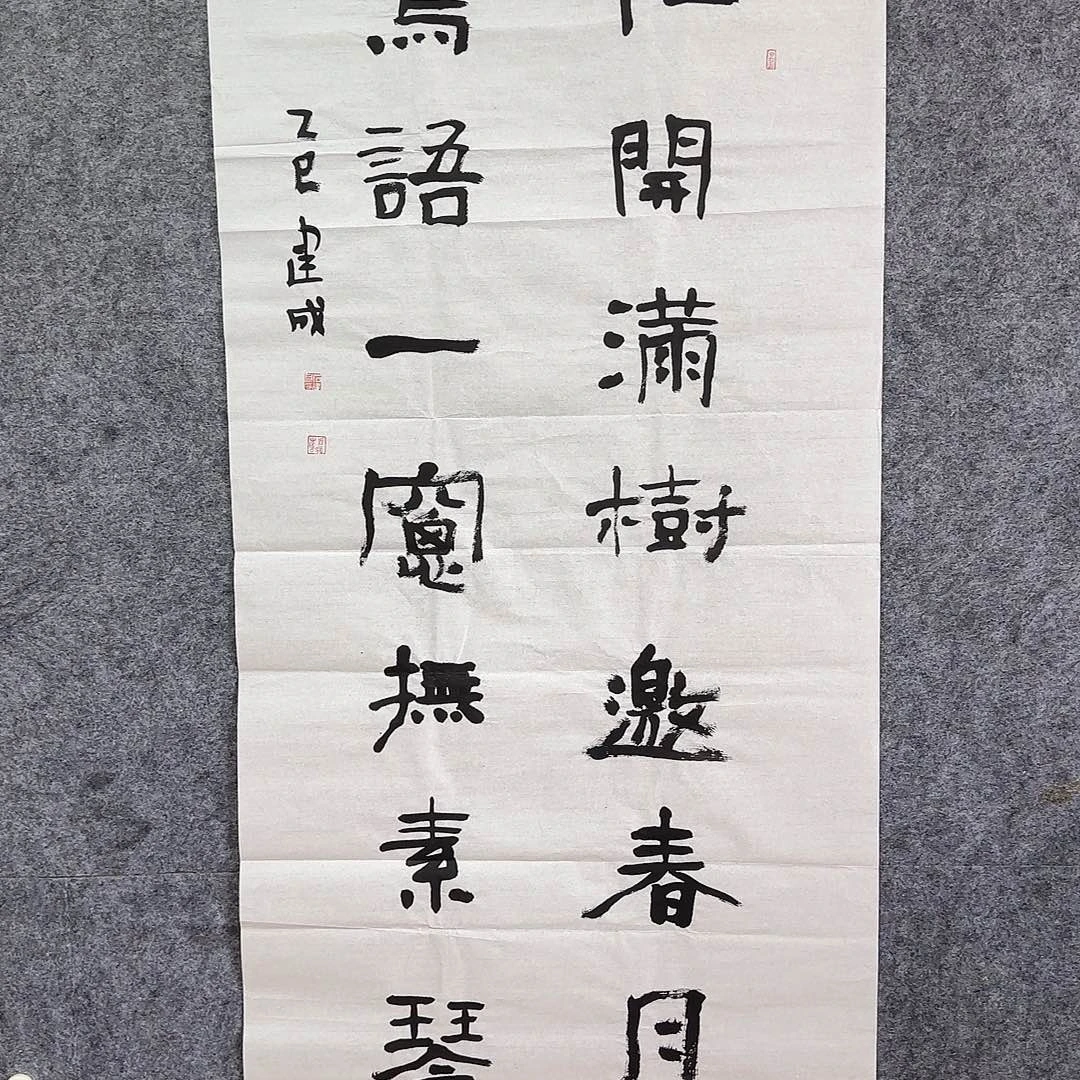 開滿樹邀春月
語一窻撫素琴
乙巳建成